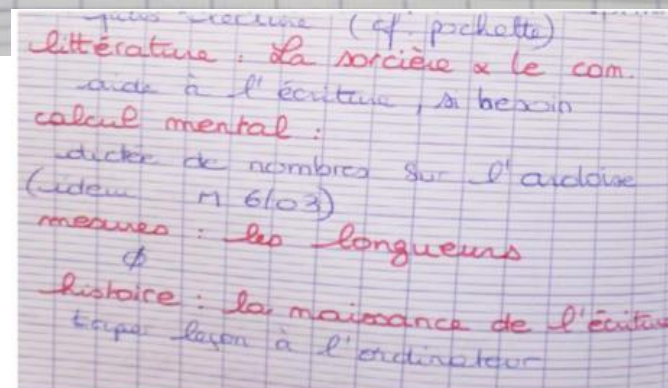 (cf. pochette)
littérature : La sorcière & le com.
aide à l'écriture, si besoin
calcul mental :
dictée de nombres sur l'ardoise
(idem M 6/03)
mesures : les longueurs
histoire : la naissance de l'écriture
taper leçon à l'ordinateur